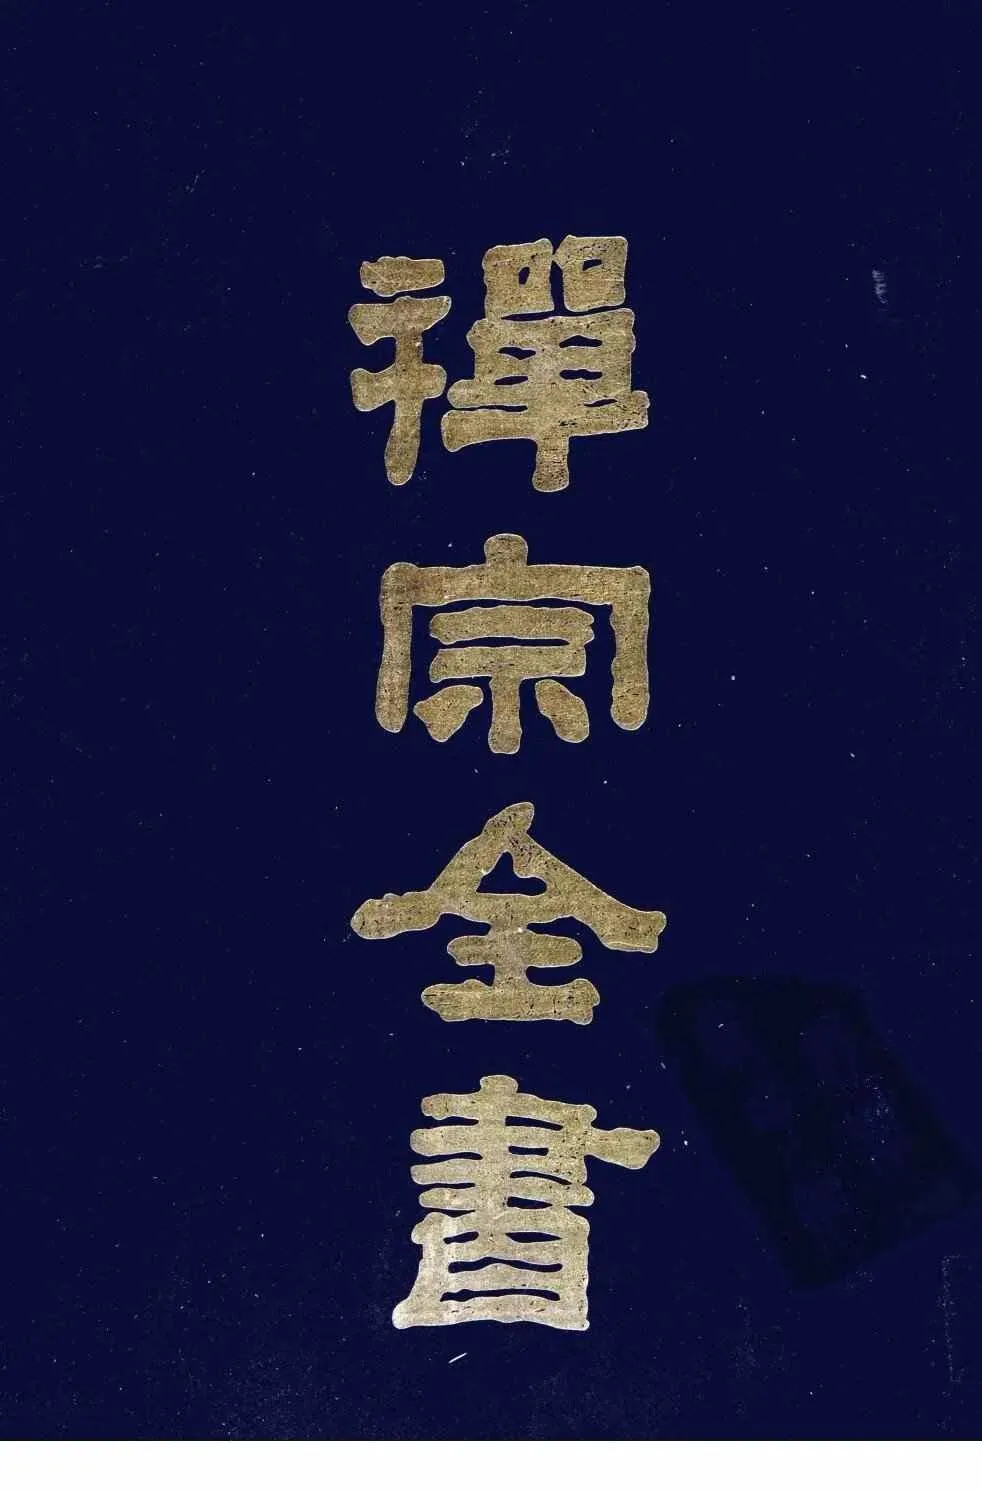 禪宗全書